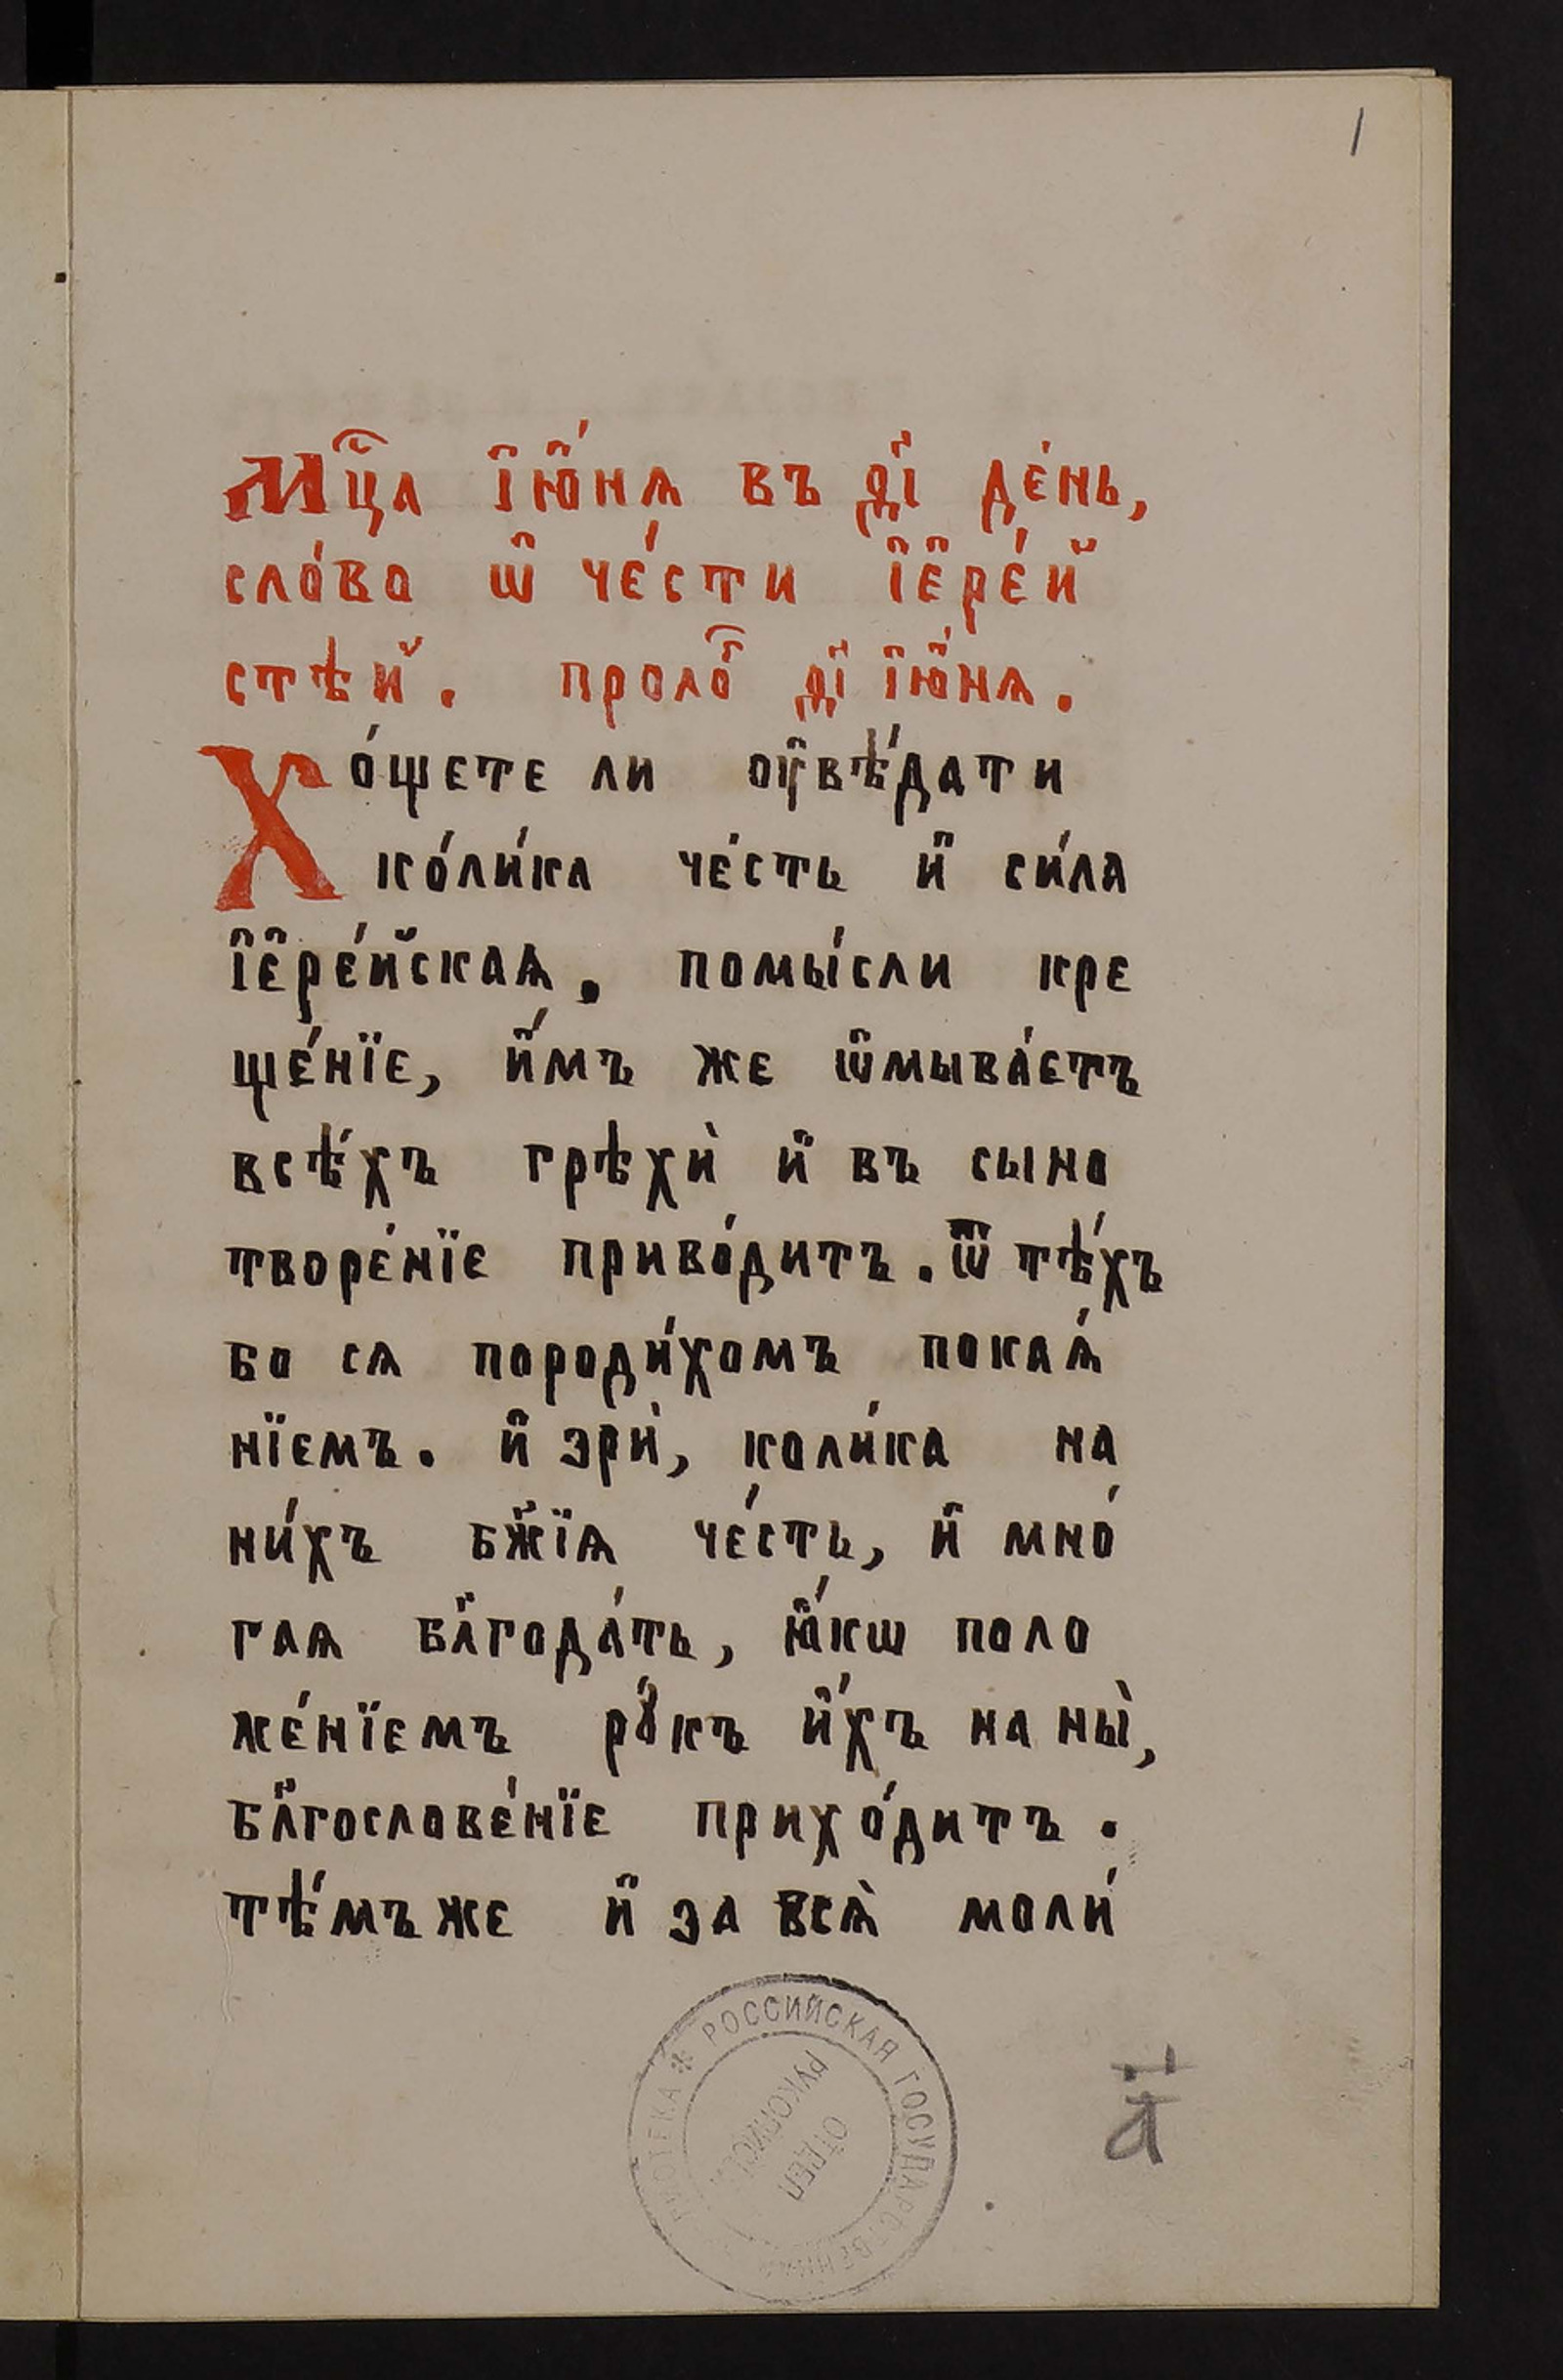 1
Мц҃а і҆ю҆́нѧ въ д҃і де́нь,
сло́во ѡ҆ че́сти і҆є҆ре́й
стѣй. проло҃г д҃і і҆ю҆́нѧ.
Хо́щете ли ᲂу҆вѣ́дати
ко́ли́ка че́сть и҆ си́ла
і҆є҆ре́йскаѧ, помы́сли кре
ще́нїе, и҆́мъ же ѡ҆мыва́етъ
всѣ́хъ грѣхѝ и҆ въ сыно
творе́нїе приво́дитъ. ѿ тѣ́хъ
бо сѧ породи́хомъ покаѧ́
нїемъ. и҆ зрѝ, коли́ка на
ни́хъ бж҃їѧ че́сть, и҆ мно́
гаѧ бл҃года́ть, ꙗ҆́кѡ поло
же́нїемъ рꙋ́къ и҆́хъ на ны̀,
бл҃гослове́нїе прихо́дитъ.
тѣ́мъже и҆ за всѧ̀ моли́
РОССИЙСКАЯ ГОСУДАРСТВЕННАЯ БИБЛИОТЕКА *
ОТДЕЛ
РУКОПИСЕЙ
а҃